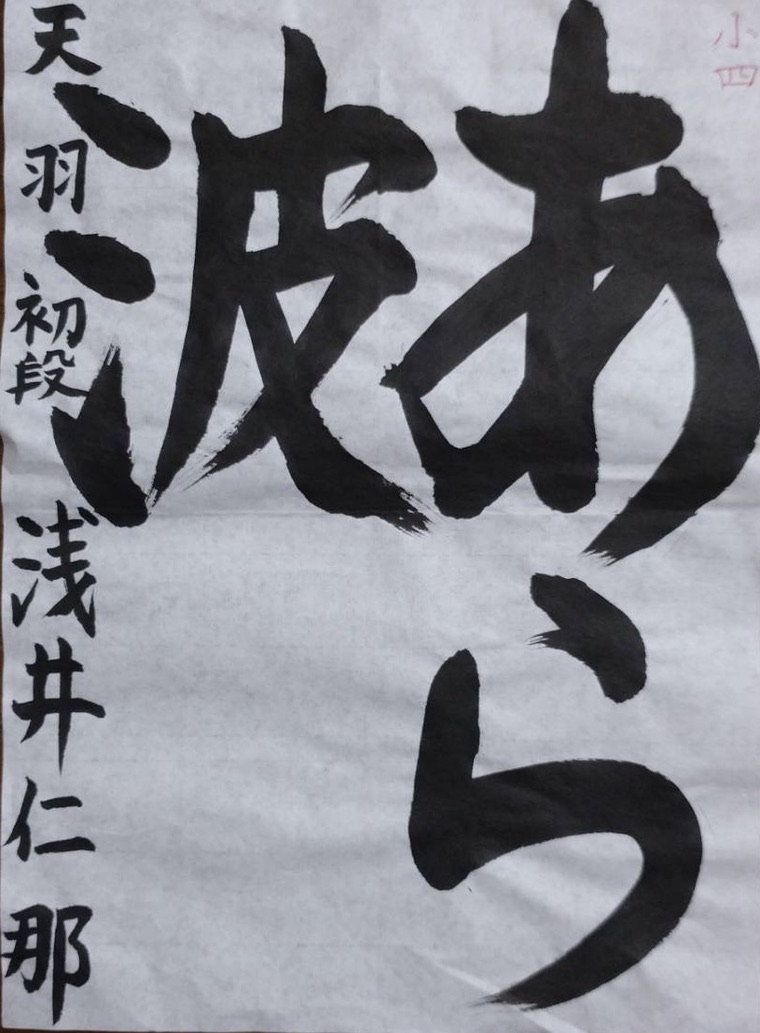 小四
あら
波
天羽 初段 浅井仁那